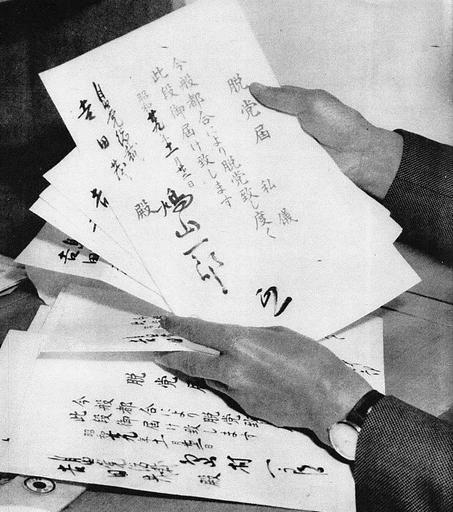 脱党届
私儀
今般都合により脱党致し度く
此段御届け致します
昭和廿九年十一月廿三日
鳩山一郎
自由党総裁
吉田茂殿
脱党
今般都合により脱党致
此段御届け致します
昭和廿九年十一月廿三日
一郎
自由党総裁
吉田茂殿